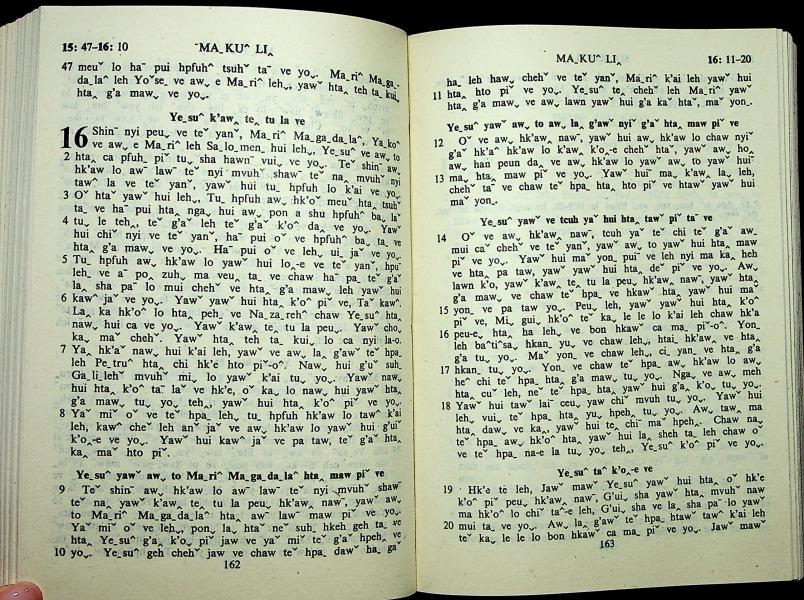 15: 47–16: 10
ˇMA_ KUˆ LI‸
47 meuˇ lo haˉ pui hpfuhˆ tsuhˇ taˉ ve yo‸. Ma_riˆ Ma_ga_-
da_laˆ leh Yoˇse_ ve aw‸ e Ma_riˆ leh‸, yawˇ hta‸ teh ta_ kui‸
hta‸ gˈa maw‸ ve yo‸.
Ye_suˆ kˈaw‸ te‸ tu la ve
16 Shinˉ nyi peu‸ ve teˇ yanˇ, Ma_riˆ Ma_ga_da_laˆ, Ya_koˆ
ve aw‸ e Ma_riˆ leh Sa_lo_men_ hui leh‸, Ye_suˆ ve aw‸ to
2 hta‸ ca pfuh_ piˇ tu‸ sha hawnˇ vui‸ ve yo‸. Teˇ shinˉ aw‸
hkˈaw lo awˉ lawˉ teˇ nyi mvuhˇ shawˉ teˇ na‸ mvuhˇ nyi
tawˆ la ve teˇ yanˇ, yawˇ hui tu_ hpfuh lo kˈai ve yo‸.
3 Oˇ htaˇ yawˇ hui leh‸, Tu_ hpfuh aw‸ hkˈoˇ meuˇ hta‸ tsuhˇ
ta_ ve haˉ pui hta‸ nga‸ hui aw‸ pon a shu hpfuhˆ ba‸ laˇ
4 tu‸ le teh‸, teˇ gˈaˇ leh teˇ gˈaˇ kˈoˆ da‸ ve yo‸. Yawˇ
hui chiˇ nyi ve teˇ yanˇ, haˉ pui oˇ ve hpfuhˆ ba_ ta_ ve
hta‸ gˈa maw‸ ve yo‸. Haˉ pui oˇ ve leh‸ ui_ jaˇ ve yo‸.
5 Tu_ hpfuh aw‸ hkˈaw lo yawˇ hui lo‸-e ve teˇ yanˇ, hpuˉ
leh_ ve aˉ po_ zuh‸ ma veu_ ta_ ve chaw haˉ pa_ teˇ gˈaˇ
la‸ sha paˉ lo mui chehˇ ve hta‸ gˈa maw‸ leh yawˇ hui
6 kawˆ jaˇ ve yo‸. Yawˇ yawˇ hui hta‸ kˈoˆ piˇ ve, Taˇ kawˆ.
La‸ ka hkˈoˆ lo hta‸ peh_ ve Na_za_rehˆ chaw Ye_suˆ hta‸
naw‸ hui ca ve yo‸. Yawˇ kˈaw‸ te‸ tu la peu‸. Yawˇ cho‸
ka‸ maˇ chehˇ. Yawˇ hta‸ teh ta_ kui‸ lo ca nyi la-o.
7 Ya‸ hkˈaˇ naw‸ hui kˈai leh, yawˇ ve aw‸ la‸ gˈawˇ teˇ hpaˉ
leh Pe_truˆ hta‸ chi hkˈe hto piˇ-oˆ. Naw‸ hui gˈuˇ suh_
Ga_li_lehˇ mvuhˇ mi‸ lo yawˇ kˈai tu‸ yo‸. Yawˇ naw‸
hui hta‸ kˈoˆ taˉ laˇ ve hkˈe, oˇ ka‸ lo naw‸ hui yawˇ hta‸
gˈa maw‸ tu‸ yo‸ teh‸, yawˇ hui hta‸ kˈoˆ piˇ ve yo‸.
8 Yaˇ miˇ oˇ ve teˇ hpa_ leh_ tu_ hpfuh hkˈaw lo tawˆ kˈai
leh, kawˆ cheˇ leh anˆ jaˇ ve aw‸ hkˈaw lo yawˇ hui gˈuiˇ
kˈo‸-e ve yo‸. Yawˇ hui kawˆ jaˇ ve pa taw, teˇ gˈaˇ hta‸
ka‸ maˇ hto piˇ.
Ye_suˆ yawˇ aw‸ to Ma_riˆ Ma_ga_da_laˆ hta‸ maw piˇ ve
9 Teˇ shinˉ aw‸ hkˈaw lo awˉ lawˉ teˇ nyi mvuhˇ shawˉ
teˇ na‸ yawˇ kˈaw‸ te‸ tu la peu‸ hkˈaw‸ nawˇ, yawˇ aw‸
to Ma_riˆ Ma_ga_da_laˆ hta‸ awˉ lawˉ maw piˇ ve yo‸.
Yaˇ miˇ oˇ ve leh‸ pon_ la‸ htaˇ neˇ suh_ hkeh geh ta_ ve
hta‸ Ye_suˆ gˈa‸ kˈo‸ piˇ jaw ve yaˇ miˇ te gˈaˇ hpeh‸ ve
10 yo‸. Ye_suˆ geh chehˇ jaw ve chaw teˇ hpa_ dawˇ ha_ gaˆ
162
MA_ KUˆ LI‸
16: 11–20
ha_ leh haw‸ chehˇ ve teˇ yanˇ, Ma_riˆ kˈai leh yawˇ hui
11 hta‸ hto piˇ ve yo‸. Ye_suˆ te‸ cheh leh Ma_riˆ yawˇ
hta‸ gˈa maw‸ ve aw‸ lawn yawˇ hui gˈa kaˇ htaˇ, ma yon_.
Ye_suˆ yawˇ aw‸ to aw‸ la‸ gˈawˇ nyiˇ gˈaˇ hta‸ maw piˇ ve
12 Oˇ ve aw‸ hkˈaw‸ nawˇ, yawˇ hui aw‸ hkˈaw lo chaw nyiˇ
gˈaˇ hkˈaˆ hkˈaw lo kˈaw‸ kˈo‸-e chehˇ htaˇ, yawˇ aw‸ ho‸
aw‸ han peun da‸ ve aw‸ hkˈaw lo yawˇ aw‸ to yawˇ huiˉ
13 ma‸ hta‸ maw piˇ ve yo‸. Yawˇ huiˉ ma‸ kˈaw‸ la‸ leh‸
chehˇ taˉ ve chaw teˇ hpa_ hta‸ hto piˇ ve htawˇ yawˇ hui
maˇ yon_.
Ye_suˆ yawˇ ve tcuh yaˇ hui hta‸ taw piˇ taˉ ve
14 Oˇ ve aw‸ hkˈaw‸ nawˇ, tcuh yaˇ te chi teˇ gˈaˇ aw_
mui caˇ chehˇ ve teˇ yanˇ, yawˇ aw‸ to yawˇ hui hta‸ maw
piˇ ve yo‸. Yawˇ hui maˇ yon_ puiˉ ve leh nyi ma ka‸ heh
ve hta‸ pa taw, yawˇ yawˇ hui hta‸ deˇ piˇ ve yo‸. Aw‸
lawn kˈo, yawˇ kˈaw‸ te‸ tu la peu‸ hkˈaw‸ nawˇ, yawˇ hta‸
gˈa maw‸ ve chaw teˇ hpa_ ve hkawˇ hta‸ yawˇ hui maˇ
15 yon_ ve pa taw yo‸. Peu‸ leh, yawˇ yawˇ hui hta‸ kˈoˆ
piˇ ve, Mi‸ gui‸ hkˈoˆ teˇ ka‸ le le lo kˈai leh chaw hkˈa
16 peu-e‸ hta‸ ha leh‸ ve bon hkawˇ ca ma_ piˇ-oˆ. Yon_
leh baˆtiˇsa‸ hkan_ yu‸ ve chaw leh‸, htai_ hkˈaw‸ ve hta‸
gˈa tu‸ yo‸. Maˇ yon_ ve chaw leh‸, ci_ yan_ ve hta‸ gˈa
17 hkan_ tu‸ yo‸. Yon_ ve chaw teˇ hpa_ aw‸ hkˈaw lo aw‸
heˆ chi teˇ hpa_ hta‸ gˈa maw‸ tu‸ yo‸. Nga‸ ve aw‸ meh
hta‸ cuˇ leh, neˇ teˇ hpa_ hta‸ yawˇ hui gˈa‸ kˈo‸ tu‸ yo‸.
18 Yawˇ hui tawˇ laiˉ ceu‸ yaw chiˇ mvuh tu‸ yo‸. Yawˇ hui
leh‸ vui‸ teˇ hpa_ hta‸ yu‸ hpeh‸ tu‸ yo‸. Aw‸ taw‸ ma
hta‸ daw‸ ve ka‸, yawˇ hui te‸ chiˉ maˇ hpeh‸. Chaw na‸
teˇ hpa_ aw‸ hkˈoˆ hta‸ yawˇ hui la‸ sheh ta_ leh chaw oˇ
ve teˇ hpa_ na-e la tu‸ yo‸ teh‸, Ye_suˆ kˈoˆ piˇ ve yo‸.
Ye_suˆ taˆ kˈo‸-e ve
19 Hkˈe te leh, Jawˇ mawˇ Ye_suˆ yawˇ hui hta‸ oˇ hkˈe
kˈoˆ piˇ peu‸ hkˈaw‸ nawˇ, Gˈui‸ sha yawˇ hta‸ mvuhˇ naw
ma hkˈoˆ lo chiˇ taˆ-e leh, Gˈui‸ sha ve la‸ sha paˉ lo yaw
20 mui ta_ ve yo‸. Aw‸ la‸ gˈawˇ teˇ hpa_ htawˇ tawˆ kˈai leh
teˇ ka‸ le le lo bon hkawˇ ca ma_ piˇ ve yo‸. Jawˇ mawˇ
163